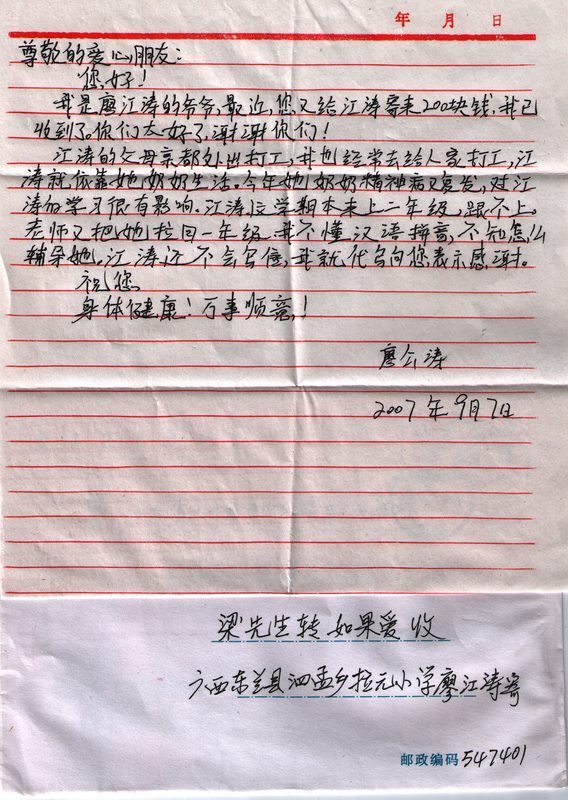 年 月 日
尊敬的爱心朋友：
您好！
我是廖江涛的爷爷，最近，您又给江涛寄来200块钱，我已
收到了，你们太好了，谢谢你们！
江涛的父母亲都外出打工，我也经常去给人家打工，江
涛就依靠她奶奶生活。今年她奶奶精神病又复发，对江
涛的学习很有影响。江涛这学期本来上二年级，跟不上。
老师又把她拉回一年级，我不懂汉语拼音，不知怎么
辅导她，江涛还不会写信，我就代写向您表示感谢。
祝您
身体健康！万事顺意！
廖江涛
2007年9月7日
梁先生转 如果爱 收
广西东兰县泗孟乡拉元小学廖江涛寄
邮政编码 547401